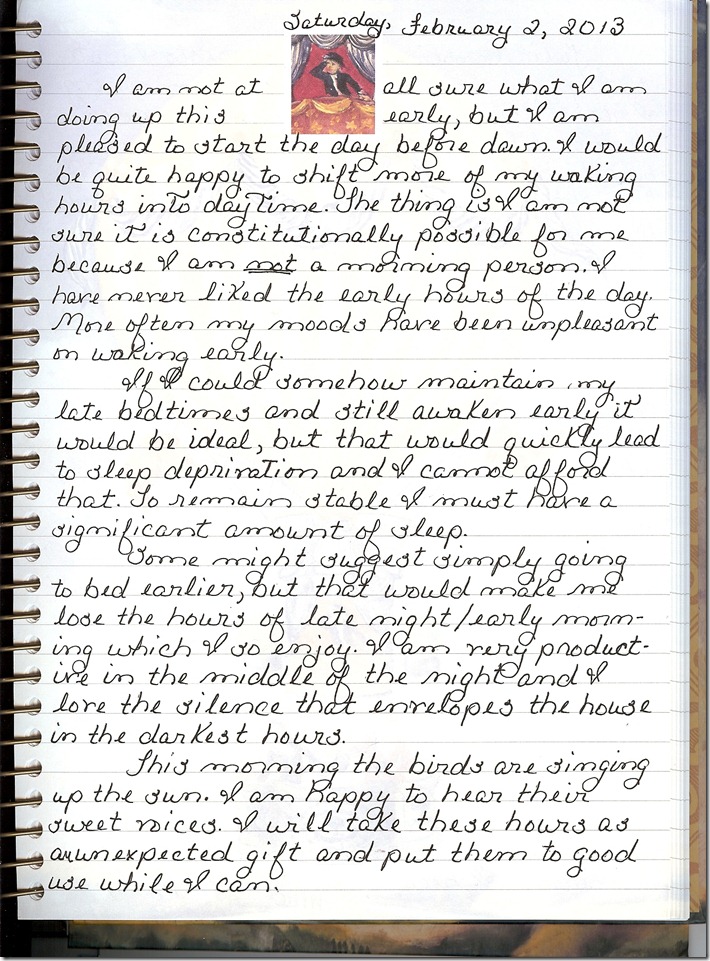 Saturday, February 2, 2013
I am not at all sure what I am
doing up this early, but I am
pleased to start the day before dawn. I would
be quite happy to shift more of my waking
hours into daytime. The thing is I am not
sure it is constitutionally possible for me
because I am not a morning person. I
have never liked the early hours of the day.
More often my moods have been unpleasant
on waking early.
If I could somehow maintain my
late bedtimes and still awaken early it
would be ideal, but that would quickly lead
to sleep deprivation and I cannot afford
that. To remain stable I must have a
significant amount of sleep.
Some might suggest simply going
to bed earlier, but that would make me
lose the hours of late night/early morn-
ing which I so enjoy. I am very product-
ive in the middle of the night and I
love the silence that envelopes the house
in the darkest hours.
This morning the birds are singing
up the sun. I am happy to hear their
sweet voices. I will take these hours as
an unexpected gift and put them to good
use while I can.